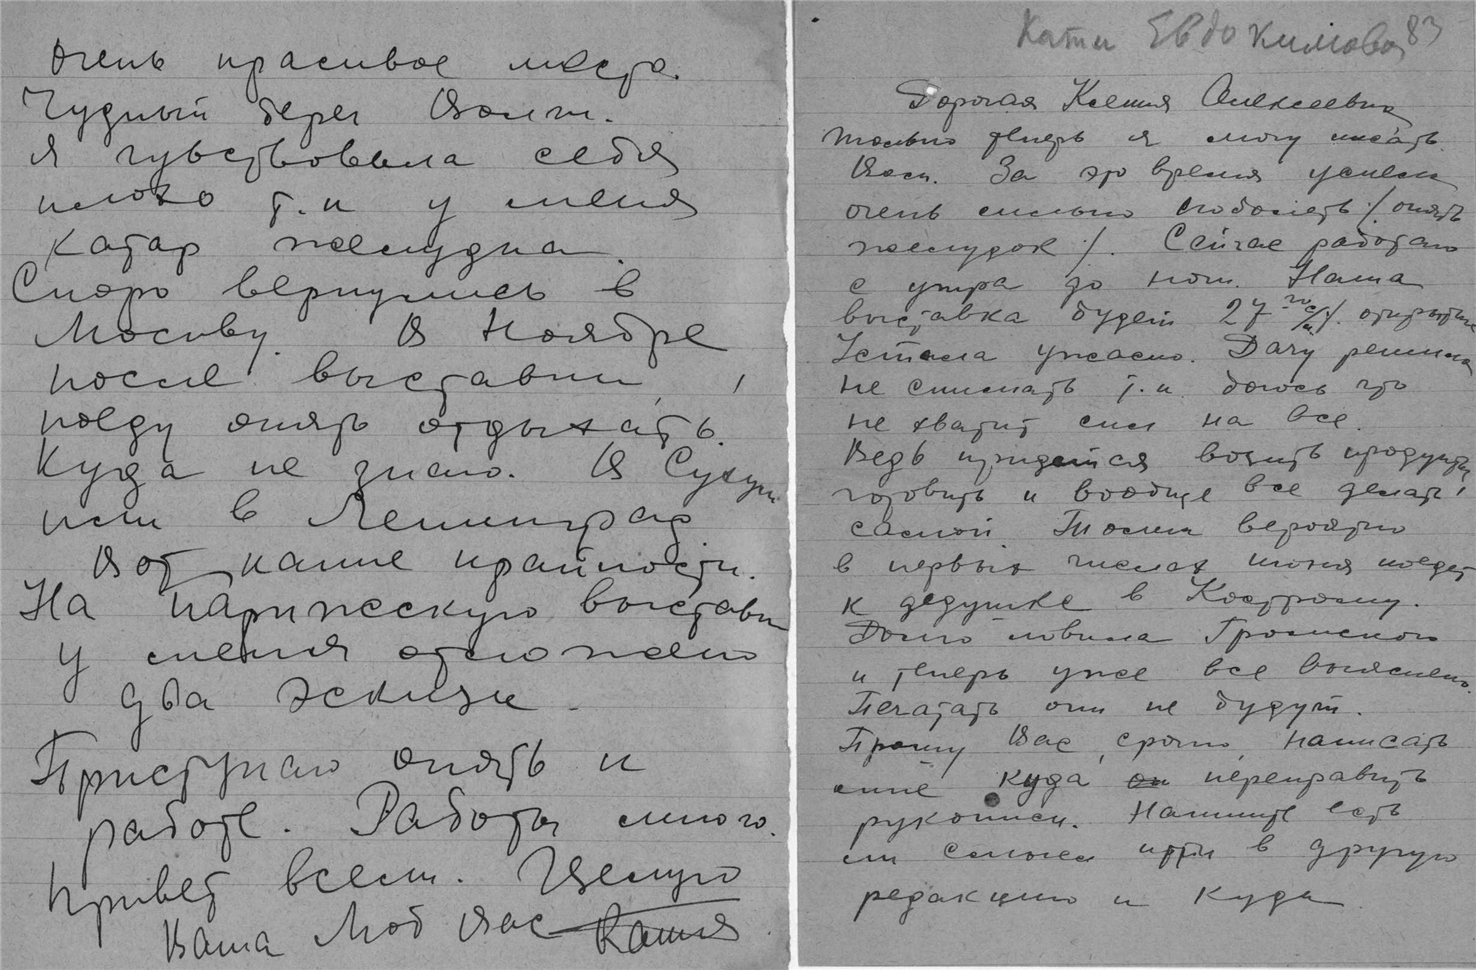 очень красивое место.
Чудный берег Волги.
Я чувствовала себя
плохо т.к у меня
катар желудка.
Скоро вернулись в
Москву. В Ноябре
после выставки,
поеду опять отдыхать.
Куда не знаю. В Сухум
или в Ленинград.
Вот какие крайности.
На парижскую выставку
у меня отложено
два эскиза.
Приступаю опять к
работе. Работы много.
Привет всем. Целую
Ваша Вас Катя
Кати Евдокимовой 83
Дорогая Ксения Алексеевна
только теперь я могу писать
Вам. За это время успела
очень сильно поболеть /опять
желудок/. Сейчас работаю
с утра до ночи. Наша
выставка будет 27 го открытие
Устала ужасно. Дачу решила
не снимать т.к. боюсь что
не хватит сил на все.
Ведь придется возить продукты
готовить и вообще все делать
самой. вероятно
в первых числах июня поедет
к дедушке в Кострому.
Долго ловила Громского
и теперь уже все выяснено.
Печатать они не будут.
Прошу Вас срочно написать
мне куда переправить
рукописи. Напишите есть
ли смысл идти в другую
редакцию и куда